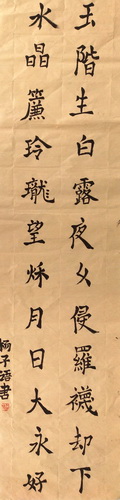 玉階生白露夜久侵羅襪却下
水晶簾玲瓏望秌月日大永好
楊子語書